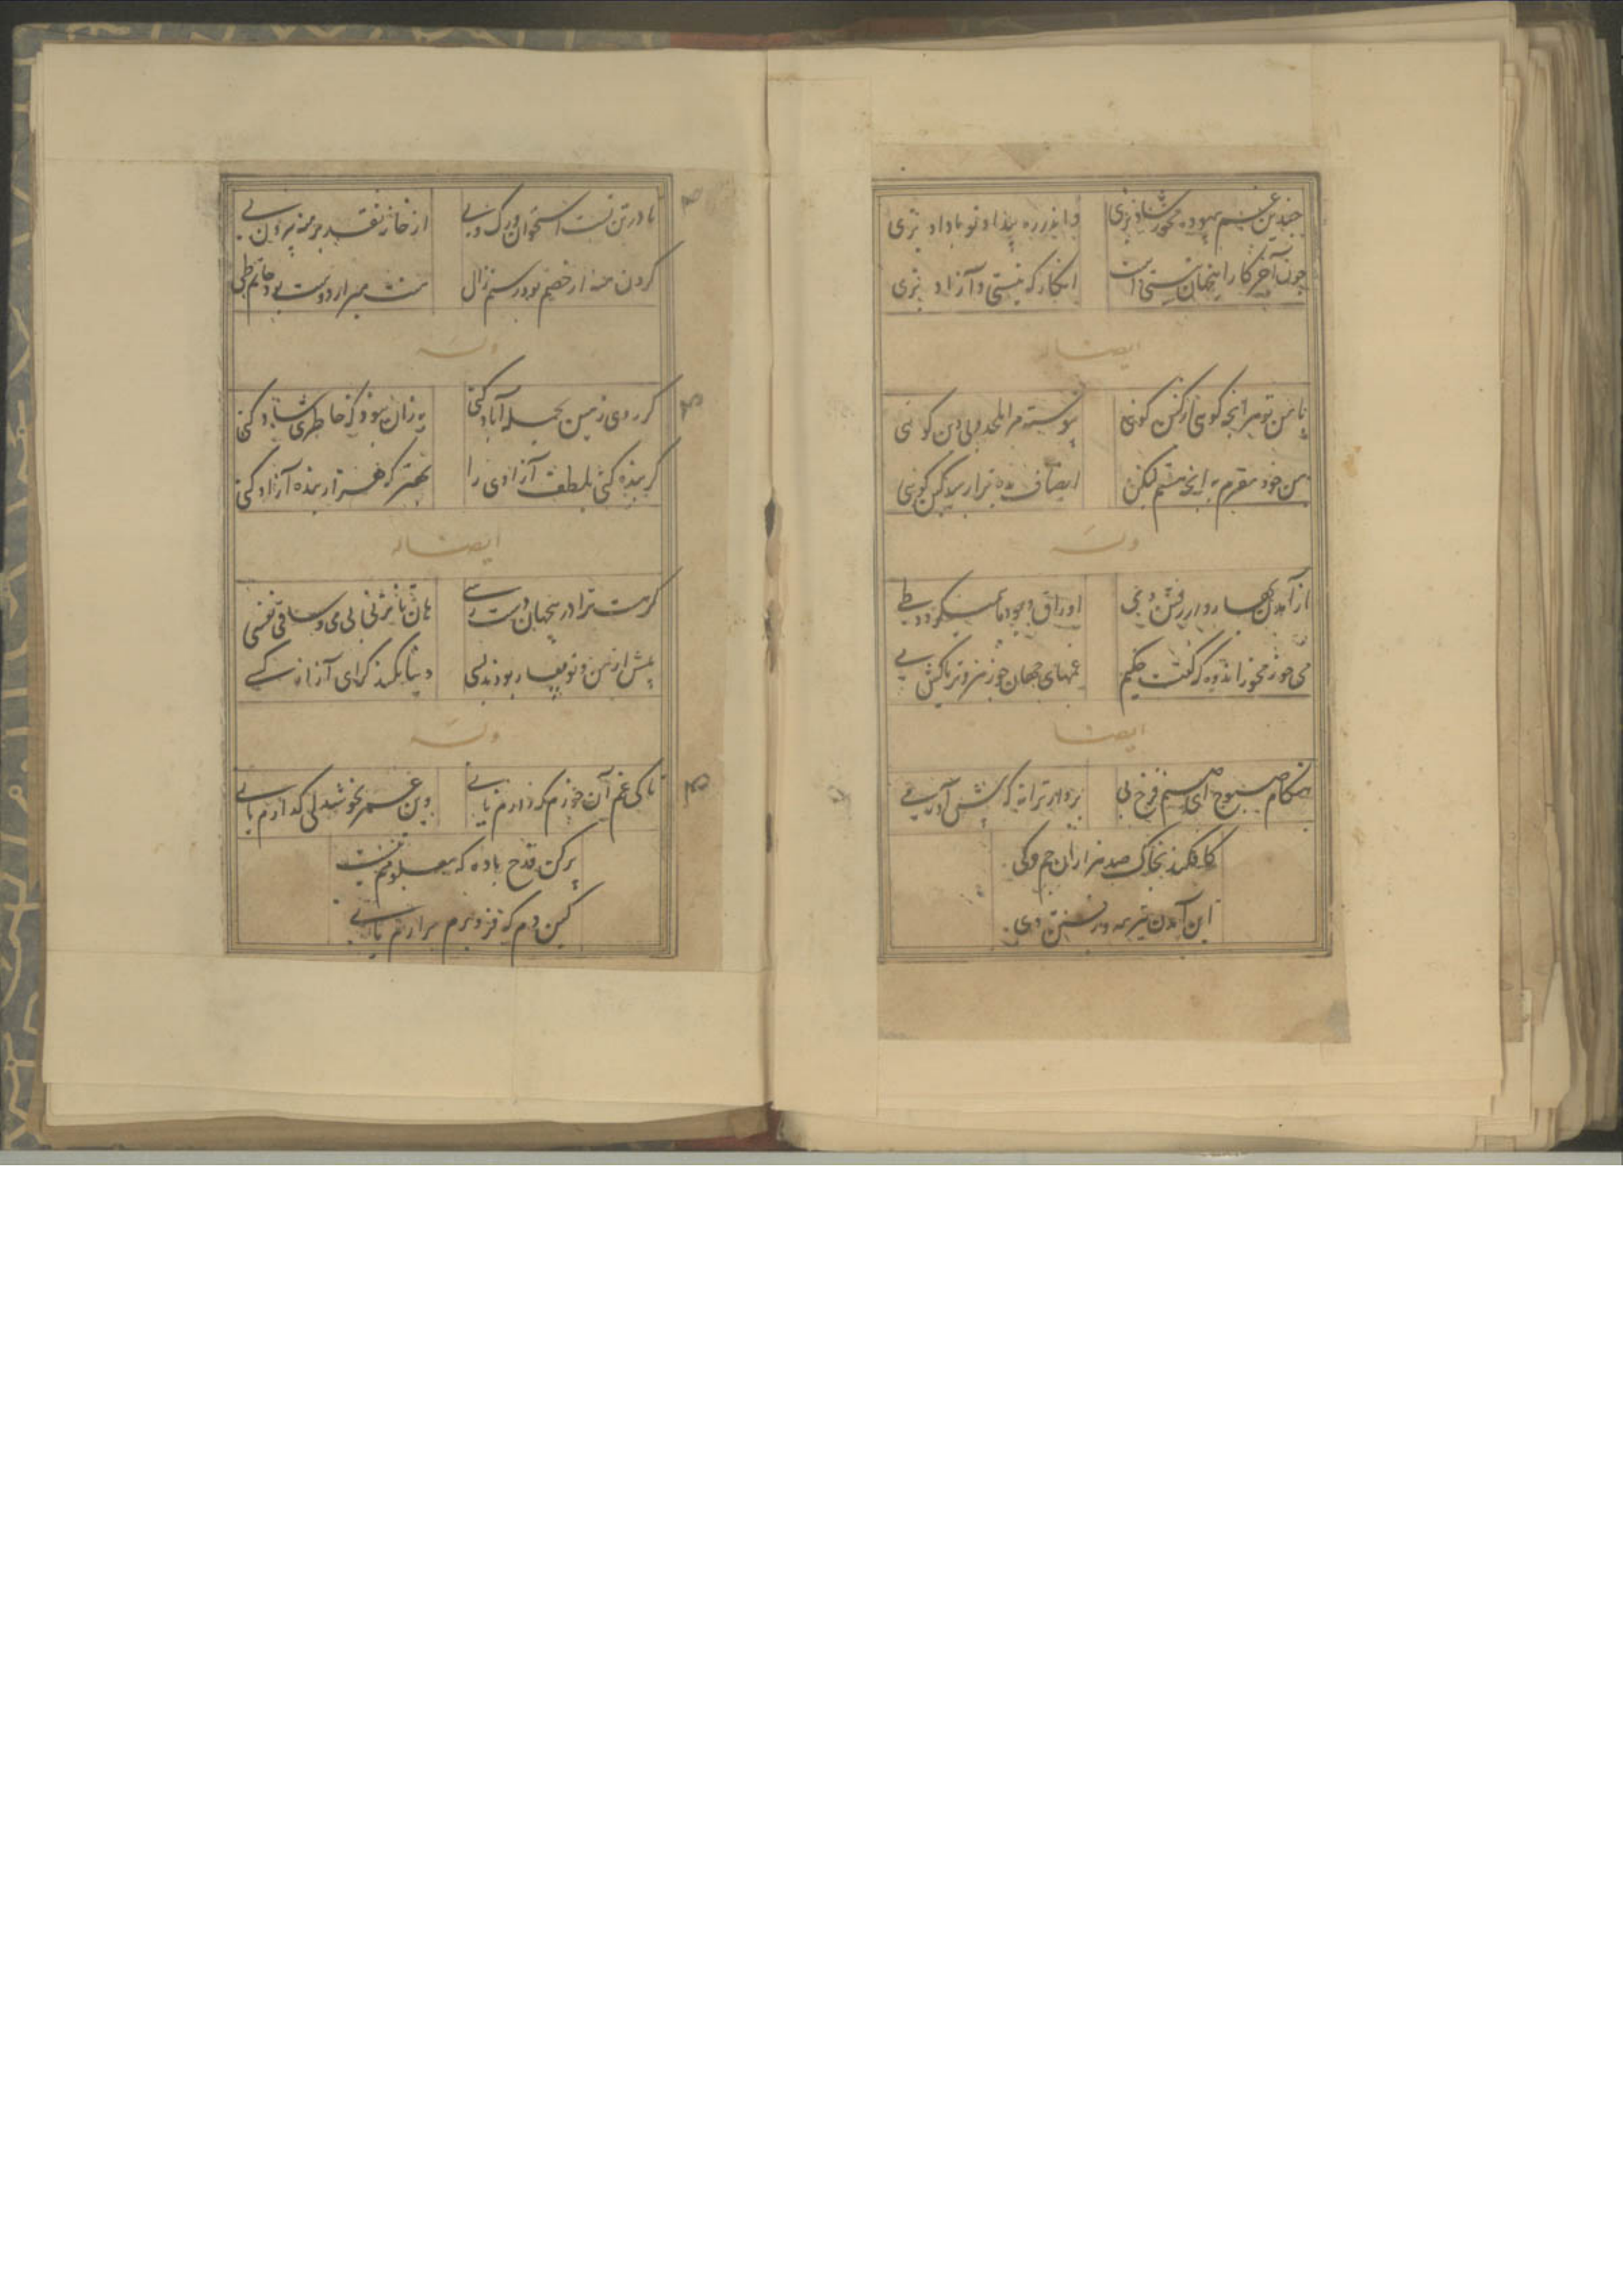 چندین غم بیهوده مخور شاد بزی
واندر ره بیداد تو با داد بزی
چون آخر کار اینجهان نیستی است
انکار که نیستی و آزاد بزی
ایضا له
با من تو هر آنچه کوئی از کین کوئی
پیوسته مرا ملحد و بی دین کوئی
من خود مقرم به آنچه هستم لیکن
انصاف بده ترا رسد کین کوئی
وله
از آمدن بهار و از رفتن دی
اوراق وجود ما همیکردد طی
می خور مخور اندوه که گفتست حکیم
غمهای جهان چو زهر و تریاکش می
ایضا
هنکام صبوح ای صنم فرخ پی
بر ساز ترانه و پیش آور می
کافکند بخاک صد هزاران جم و کی
این آمدن تیر مه و رفتن دی
تا در تن تست استخوان و رک و پی
از خانه تقدیر منه بیرون پی
کردن منه ار خصم بود رستم زال
منت مبر ار دوست بود حاتم طی
وله
کر روی زمین بجمله آباد کنی
به زان نبود که خاطری شاد کنی
کر بنده کنی بلطف آزادی را
بهتر که هزار بنده آزاد کنی
ایضا له
کر هست ترا درینجهان دست رسی
هان تا نزنی بی می و ساقی نفسی
پیش از من و تو بیار بودند بسی
دنیا نکند کرای آزار کسی
وله
تا کی غم آن خورم که دارم یا نی
وین عمر بخوشدلی کذارم یا نی
پر کن قدح باده که معلومم نیست
کین دم که فرو برم برآرم یا نی